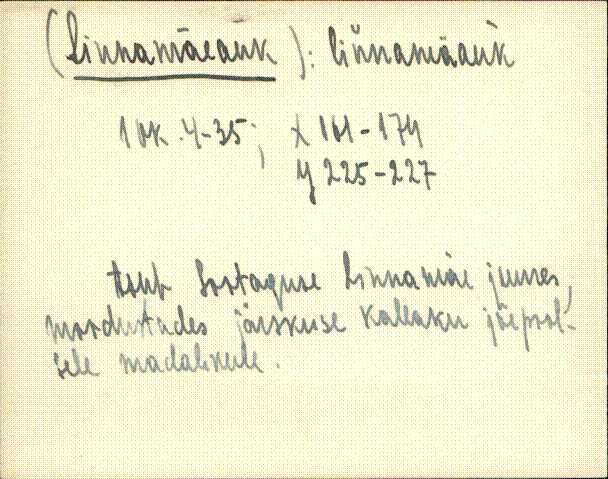 (Linnamäeauk): liǹnamäauk
1 ok. 4-35; x 161-174
y 225-227
asub Sootaguse Linnamäe juures,
moodustades järskuse kallaku jõepool-
sele madalikule.